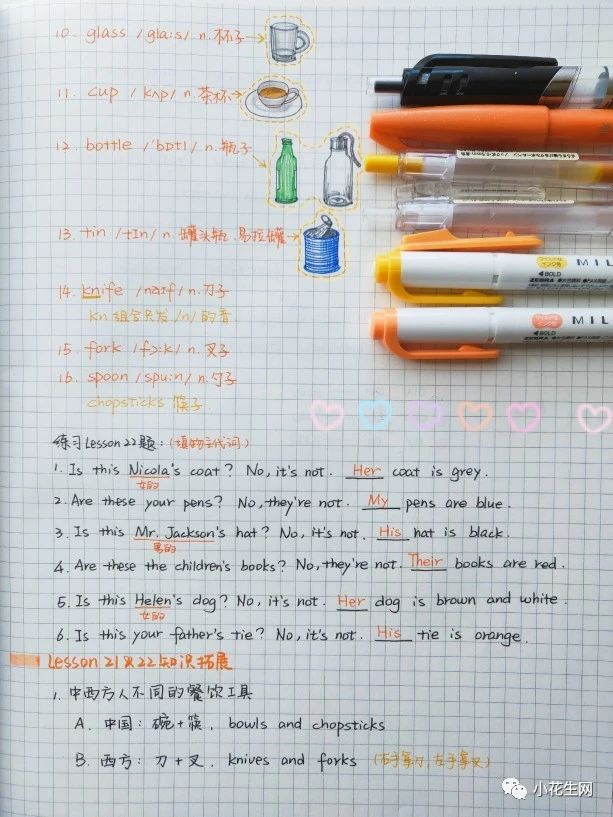 10. glass /glɑ:s/ n.杯子
11. cup /kʌp/ n.茶杯
12. bottle /'bɒtl/ n.瓶子
13. tin /tIn/ n.罐头瓶.易拉罐
14. knife /naIf/ n.刀子
kn组合只发/n/的音
15. fork /fɔ:k/ n.叉子
16. spoon /spu:n/ n.勺子
chopsticks 筷子
◀BOLD MIL
◀BOLD MIL
练习Lesson 22题:(填物主代词)
1. Is this Nicola's coat? No, it's not. Her coat is grey.
女的
2. Are these your pens? No, they're not. My pens are blue.
3. Is this Mr. Jackson's hat? No, it's not. His hat is black.
男的
4. Are these the children's books? No, they're not. Their books are red.
5. Is this Helen's dog? No, it's not. Her dog is brown and white.
女的
6. Is this your father's tie? No, it's not. His tie is orange.
Lesson 21&22知识拓展
1. 中西方人不同的餐饮工具
A. 中国:碗+筷. bowls and chopsticks
B. 西方:刀+叉. knives and forks (右手拿刀 左手拿叉)
小花生网